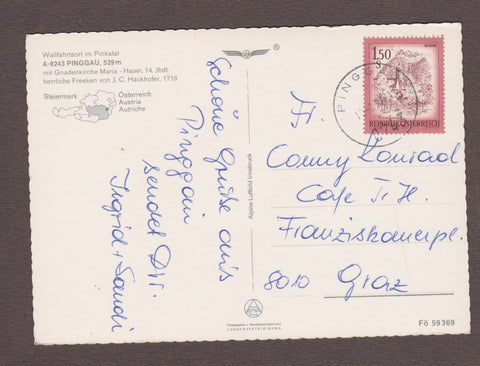 Wallfahrtsort im Pinkatal
A-8243 PINGGAU, 529m
mit Gnadenkirche Maria - Hasel, 14. Jhdt.
herrliche Fresken von J. C. Hackhofer, 1718
Steiermark
Österreich
Austria
Autriche
Schöne Grüße aus
Pinggau
sendet Dir
Ingrid + Sandi
Alpine Luftbild Innsbruck
LANDESVERTEIDIGUNG
1.50
REPUBLIK ÖSTERREICH
PINGG
Fr.
Conny Konrad
Cafe T. H.
Franziskanerpl.
8010 Graz
Fö 59369